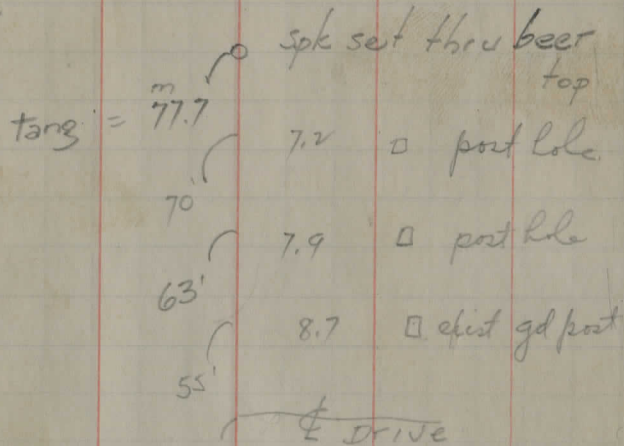 spk set thru beer
top
m
tang = 77.7
7.2 □ post hole
70'
7.9 □ post hole
63'
8.7 □ exist gd post
55'
℄ Drive